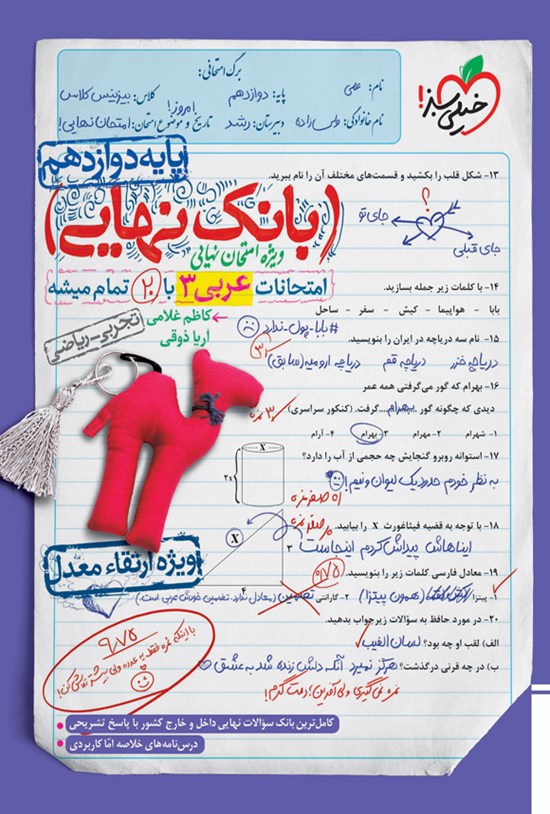 برگ امتحانی:
نام: علی پایه: دوازدهم کلاس: بیزینس کلاس
امروز!
نام خانوادگی: ولی‌زاده دبیرستان: رشد تاریخ و موضوع امتحان: امتحان نهایی!
خیلی سبز!
پایه دوازدهم
(بانک نهایی)
ویژه امتحان نهایی
امتحانات عربی ۳ با ۲۰ تمام میشه
تجربی - ریاضی
کاظم غلامی
آریا ذوقی
۱۳- شکل قلب را بکشید و قسمت‌های مختلف آن را نام ببرید.
؟
جای تو
جای قبلی
۱۴- با کلمات زیر جمله بسازید.
بابا - هواپیما - کیش - سفر - ساحل
#بابا-پول-ندارد
۱۵- نام سه دریاچه در ایران را بنویسید.
۳
دریاچه خزر دریاچه قم دریاچه ارومیه (سابق)
۱۶- بهرام که گور می‌گرفتی همه عمر
دیدی که چگونه گور بهرام گرفت. (کنکور سراسری) ۳ نمره
۱- شهرام ۲- مهرام ۳- بهرام ۴- آرام
۱۷- استوانه روبرو گنجایش چه حجمی از آب را دارد؟
X
2x
به نظر خودم حدود یک لیوان و نیم!
صفر نمره
۱۸- با توجه به قضیه فیثاغورت X را بیابید.
صفر نمره
X
۳
۴
ایناهاش پیداش کردم اینجاست
۱۹- معادل فارسی کلمات زیر را بنویسید. ۰/۷۵
۱- پیتزا (همون پیتزا) ۲- گارانتی تضمین (معادل ندارد. تضمین خودش عربی است.)
۲۰- در مورد حافظ به سؤالات زیر جواب بدهید.
الف) لقب او چه بود؟ لسان الغیب
ب) در چه قرنی درگذشت؟ هرگز نمیرد آنکه دلش زنده شد به عشق
نمره نمی‌گیری ولی آفرین؛ دمت گرم!
ویژه ارتقاء معدل
۹/۷۵
کامل‌ترین بانک سؤالات نهایی داخل و خارج کشور با پاسخ تشریحی
درس‌نامه‌های خلاصه امّا کاربردی